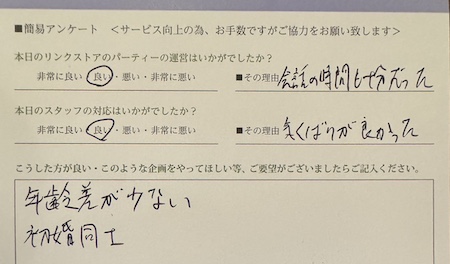 ■簡易アンケート ＜サービス向上の為、お手数ですがご協力をお願い致します＞
本日のリンクストアのパーティーの運営はいかがでしたか？
非常に良い・良い・悪い・非常に悪い ■その理由 会話の時間も十分だった
本日のスタッフの対応はいかがでしたか？
非常に良い・良い・悪い・非常に悪い ■その理由 気くばりが良かった
こうした方が良い・このような企画をやってほしい等、ご要望がございましたらご記入ください。
年齢差が少ない
初婚同士